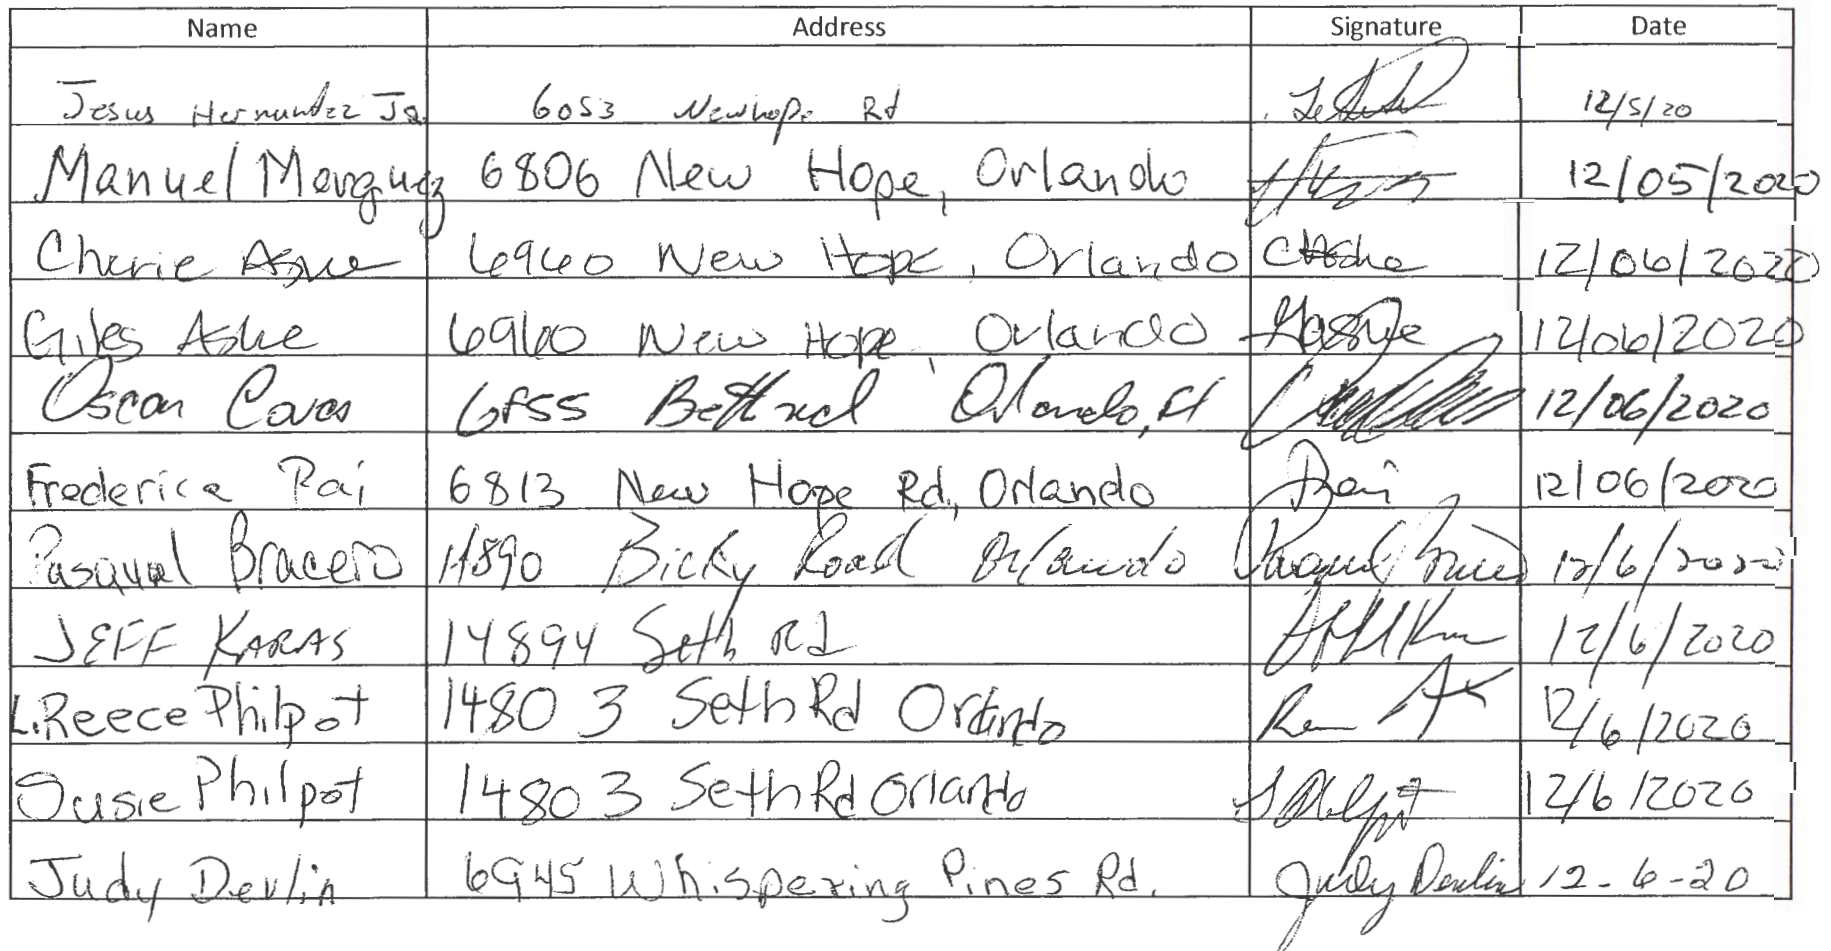 Name Address Signature Date
Jesus Hernandez Jr. 6053 Newhope Rd 12/5/20
Manuel Marquez 6806 New Hope, Orlando 12/05/2020
Cherie Ashe 6960 New Hope, Orlando CAshe 12/06/2020
Giles Ashe 6960 New Hope, Orlando GAshe 12/06/2020
Oscar 6855 Orlando, Fl 12/06/2020
Frederica Pai 6813 New Hope Rd, Orlando Pai 12/06/2020
Pasqual Bracero Bicky Road Orlando Pasqual 12/6/2020
JEFF KARAS 14894 Seth Rd 12/6/2020
L. Reece Philpot 14803 Seth Rd Orlando 12/6/2020
Susie Philpot 14803 Seth Rd Orlando S Philpot 12/6/2020
Judy Devlin 6945 Whispering Pines Rd. Judy Devlin 12-6-20